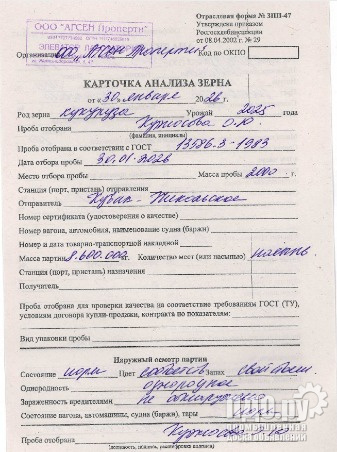 Отраслевая форма № ЗПП-47
Утверждена приказом
Росгосхлебинспекции
от 08.04.2002 г. № 29
ООО "АГСЕН Проперти"
Организация ООО "Агсен Проперти" Код по ОКПО
КАРТОЧКА АНАЛИЗА ЗЕРНА
от «30» января 2026 г.
Род зерна кукуруза Урожай 2025 года
Проба отобрана О.Ю
(фамилия, инициалы)
Проба отобрана в соответствии с ГОСТ 13586.3-1983
Дата отбора пробы 30.01.2026
Место отбора пробы Масса пробы 2000 г.
Станция (порт, пристань) отправления
Отправитель Кувак-Никольское
Номер сертификата (удостоверения о качестве)
Номер вагона, автомобиля, наименование судна (баржи)
Номер и дата товарно-транспортной накладной
Масса партии 9.600.000 Количество мест (или насыпью) насыпь
Станция (порт, пристань) назначения
Получатель
Проба отобрана для проверки качества на соответствие требованиям ГОСТ (ТУ),
условиям договора купли-продажи, контракта по показателям:
Вид упаковки пробы
Наружный осмотр партии
Состояние норм Цвет свойств Запах свойств.
Однородность однородное
Зараженность вредителями не обнаружена
Состояние вагона, автомашины, судна (баржи), тары норм.
Проба отобрана
(должность, подпись, расшифровка подписи)